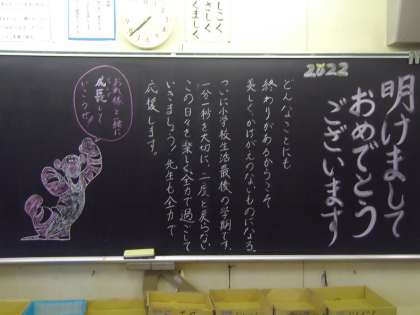 2022
明けまして
おめでとう
ございます
どんなことにも
終わりがあるからこそ
美しく、かけがえのないものになる。
ついに小学校生活最後の学期です。
一分一秒を大切に、二度と来らない
この日々を楽しく全力で過ごして
いきましょう。先生も全力で
応援します。
おれ様と一緒に
成長して
いこうぜ!